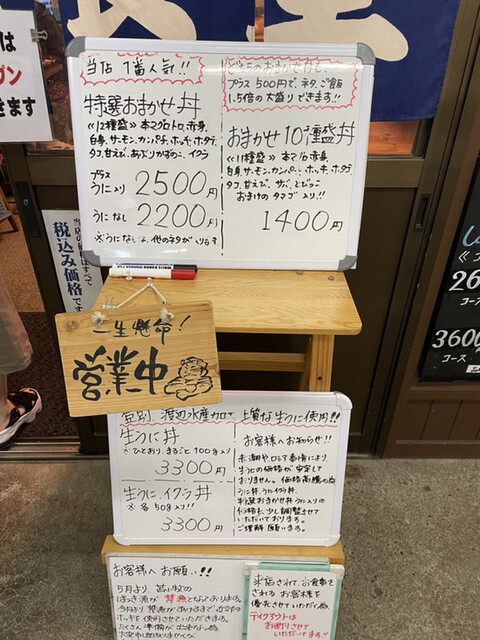 は
プン
きます
当店 1番人気!!
特選おまかせ丼
≪12種盛≫ 本マグロトロ、赤身、
白身、サーモン、カンパチ、ホッキ、ホタテ、
タコ、甘えび、あぶりかずのこ、イクラ
プラス
うに入り 2500円
うになし 2200円
※うになしは、他のネタが入ります
どちらのおまかせ丼も、
プラス500円で、ネタ、ご飯
1.5倍の大盛りできます!!
おまかせ10種盛丼
≪11種盛≫ 本マグロ赤身、
白身、サーモン、カンパチ、ホッキ、ホタテ、
タコ、甘えび、サバ、とびっこ
おまけの タマゴ 入り!!
1400円
当店の価格はすべて
税込み価格です
一生懸命!
営業中
特別、渡辺水産カロで、上質な生うに使用!!
生うに丼
※ひとおり、まるごと100g入り
3300円
生うに、イクラ丼
※各50g入り!!
3300円
お客様へお知らせ!!
赤潮や、ロシア事情により
生うにの価格が安定して
おりません。価格高騰の為
うに丼、うにイクラ丼、
特選おまかせ丼うに入りの
価格も少し調整させて
いただいております。
ご理解願います。
コース
3600
コース
お客様へお願い!!
5月より、苫小牧の
ほっき漁が禁漁となっております。
テイクアウトは
お断りさせて
いただいてます!